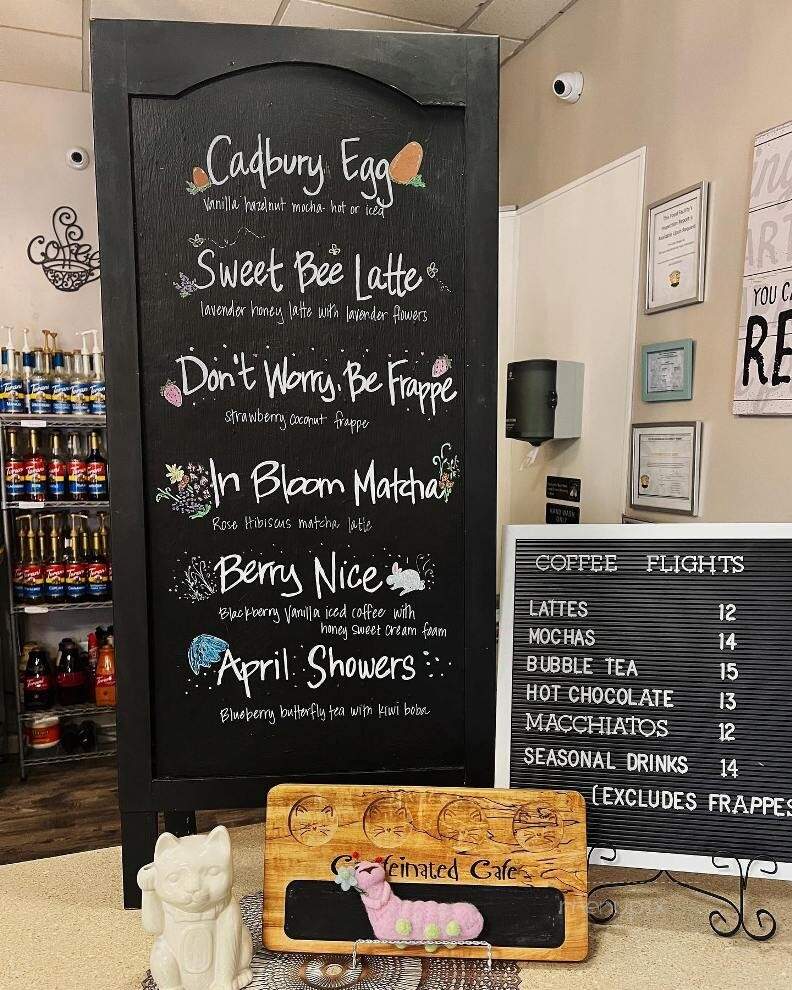 Cadbury Egg
Vanilla hazelnut mocha- hot or iced
Sweet Bee Latte
lavender honey latte with lavender flowers
Don't Worry, Be Frappe
strawberry coconut frappe
In Bloom Matcha
Rose Hibiscus matcha latte
Berry Nice
Blackberry Vanilla iced coffee with
honey sweet cream foam
April Showers
Blueberry butterfly tea with kiwi boba
coffee
Torani
HAND WASH
ONLY
YOU CA
RE
COFFEE FLIGHTS
LATTES 12
MOCHAS 14
BUBBLE TEA 15
HOT CHOCOLATE 13
MACCHIATOS 12
SEASONAL DRINKS 14
(EXCLUDES FRAPPES
feinated Cafe